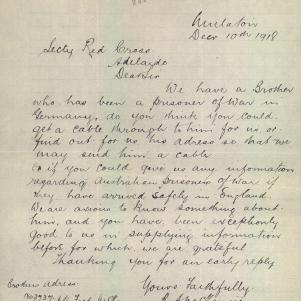 Minlaton
Decr 10th 1918
Secty Red Cross
Adelaide
Dear Sir
We have a Brother
who has been a prisoner of War in
Germany, do you think you could
get a cable through to him for us or
find out for us his adress so that we
may send him a cable
or if you could give us any information
regarding Australian Prisoners of War if
they have arrived safely in England.
We are anxious to know something about
him, and you have been exceptionly
good to us in supplying information
before for which we are grateful
Thanking you for an early reply
Yours Faithfully
adress